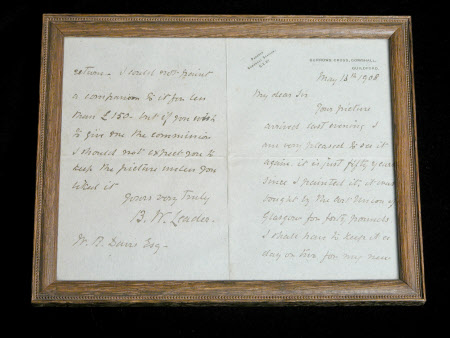 BURROWS CROSS, GOMSHALL,
GUILDFORD.
May 13th 1908
My dear Sir
Your picture
arrived last evening I
am very pleased to see it
again. it is just fifty years
since I painted it, it was
bought by the Art Union of
Glasgow for forty pounds.
I shall have to keep it a
day or two for my new
return - I could not paint
a companion to it for less
than £150 - but if you wish
to give me the commission
I should not expect you to
keep the picture unless you
liked it
Yours very truly
B. W. Leader.
W. R. Esq -